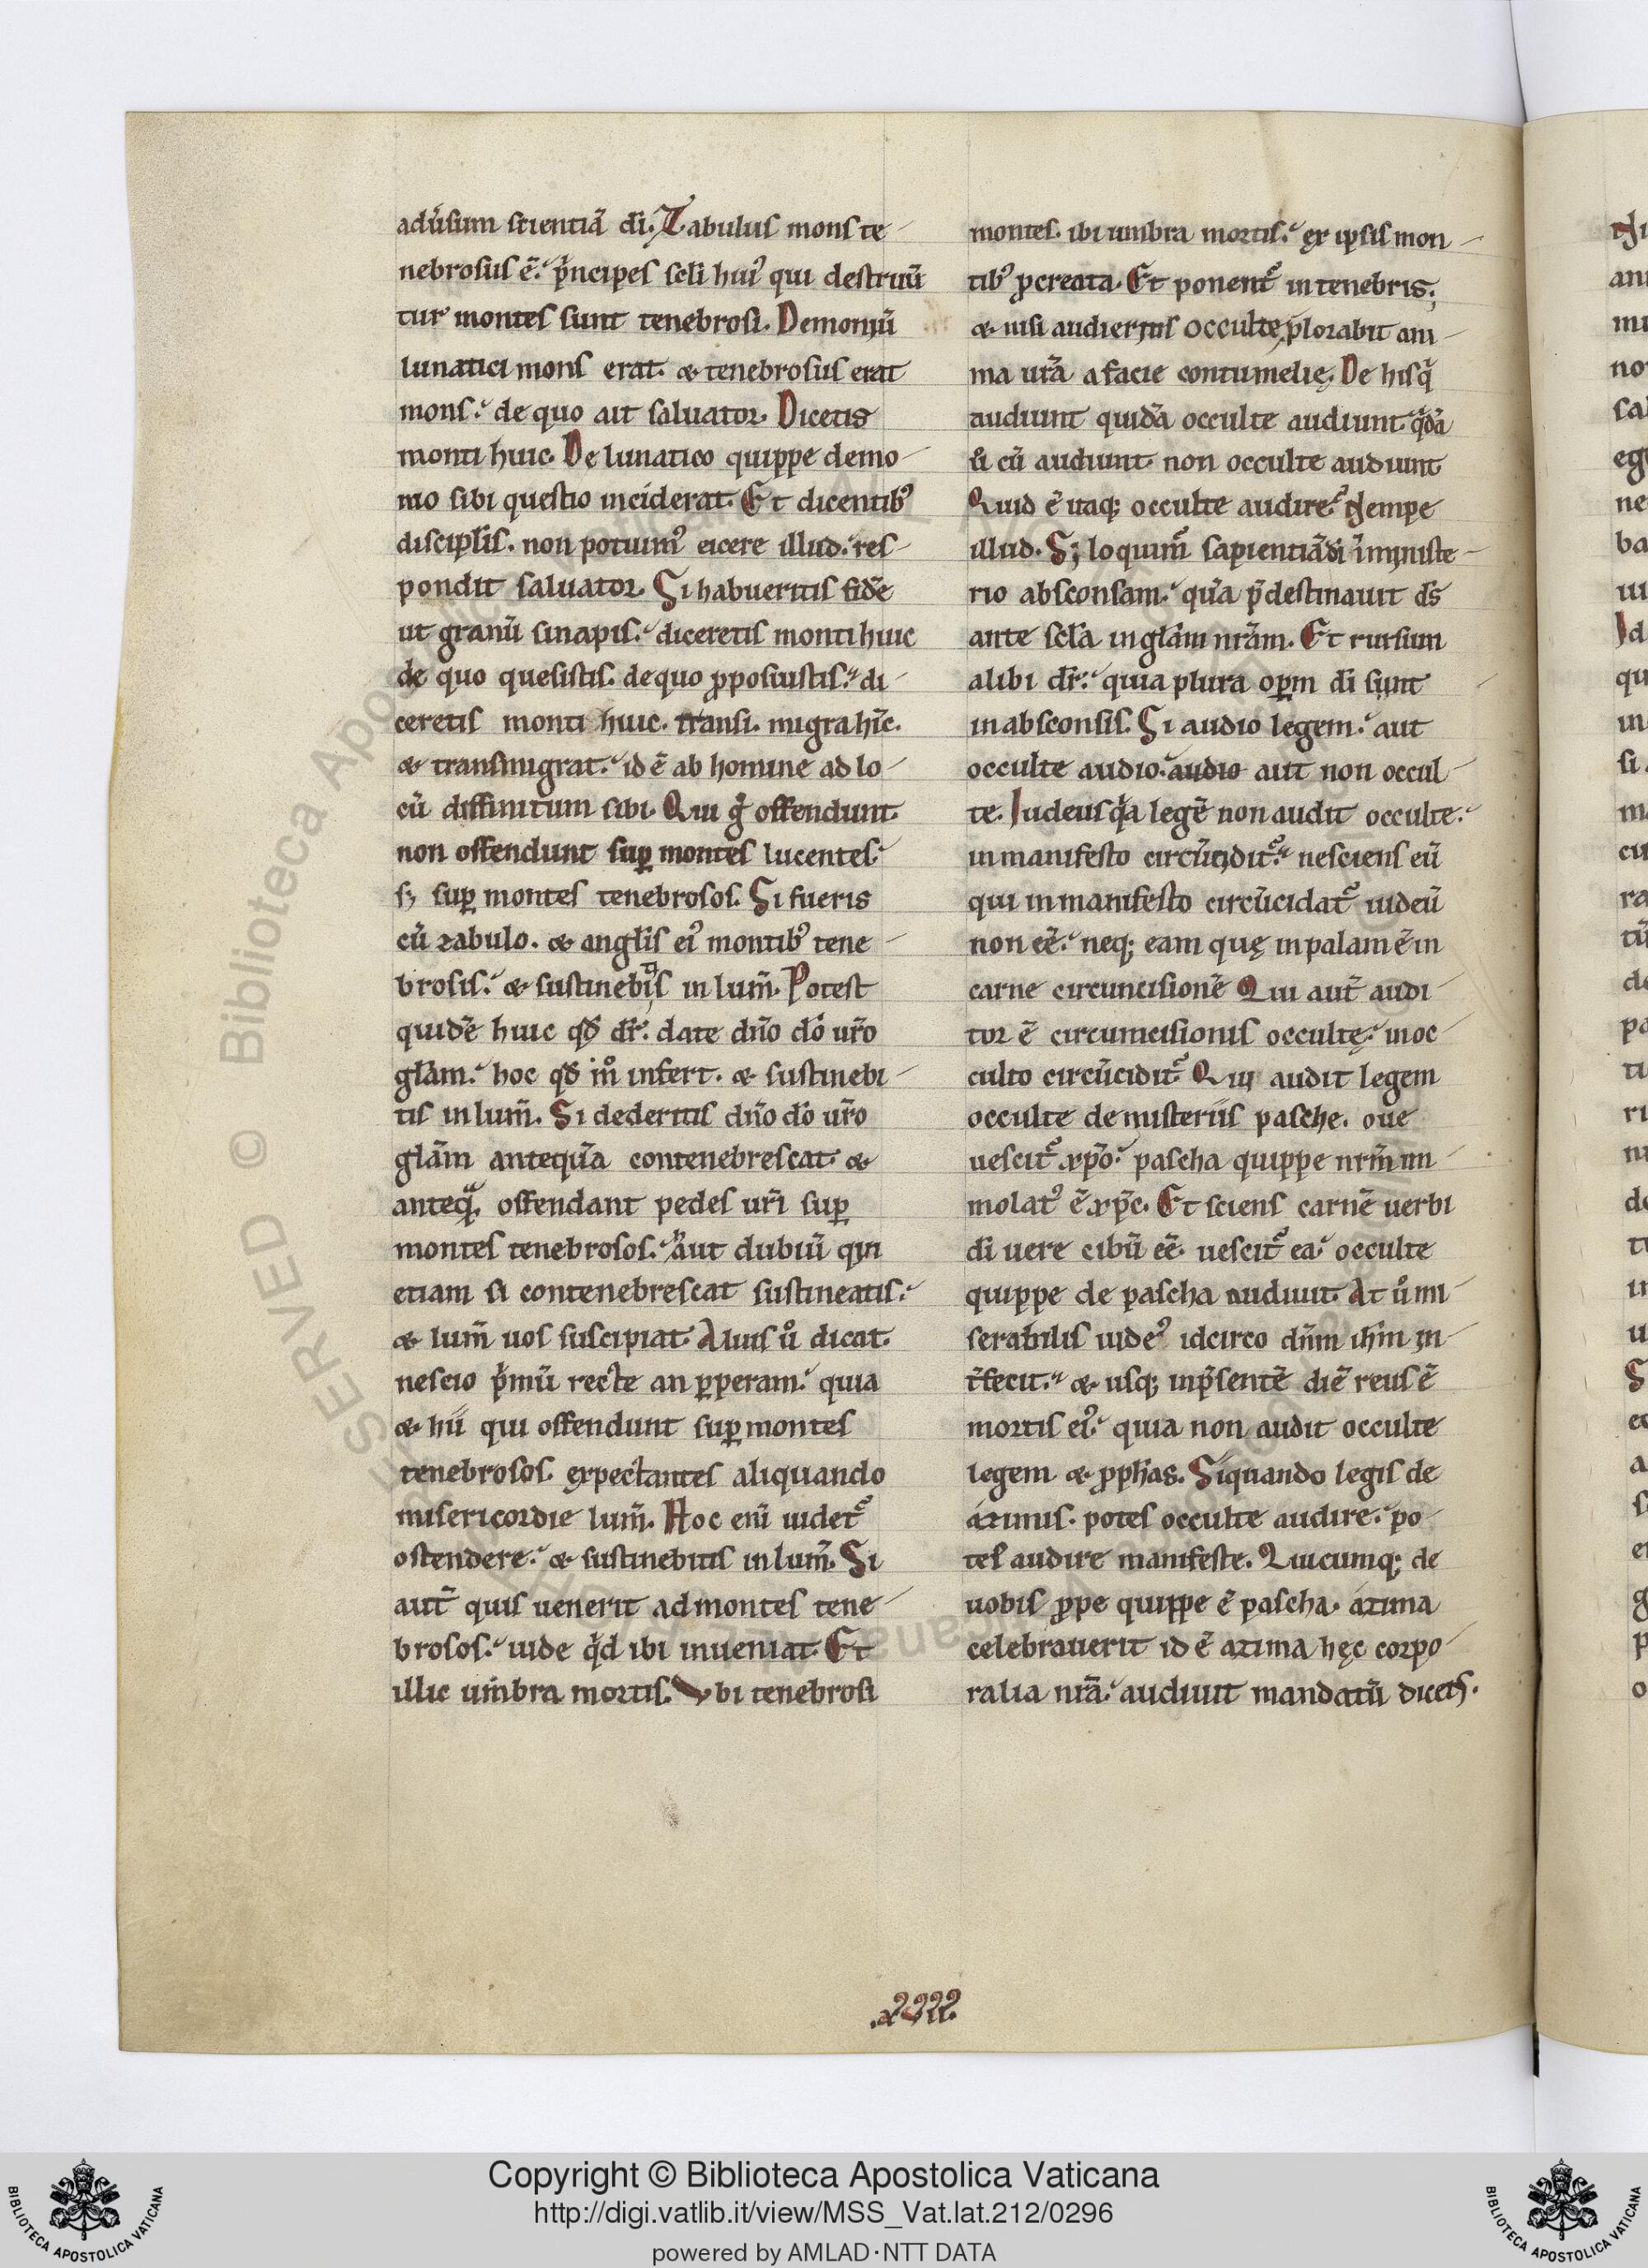 adűsum scientiã dĩ. Zabulus mons te
nebrosus ẽ. pͥncipes scłi huiꝰ qui destruũ
tur montes sunt tenebrosi. Demoniũ
lunatici mons erat. & tenebrosus erat
mons. de quo ait saluator. Dicetis
monti huic. De lunatico quippe demo
nio sibi questio inciderat. Et dicentibꝰ
discipłis. non potuimꝰ eicere illud. res
pondit saluator. Si habueritis fidẽ
ut granũ sinapis. diceretis monti huic
de quo quesistis. de quo ꝓposuistis. di
ceretis monti huic. transi. migra hĩc.
& transmigrat. id ẽ ab homine ad lo
cũ diffinitum sibi. Qui gͦ offendunt.
non offendunt suꝑ montes lucentes.
sꝫ suꝑ montes tenebrosos. Si fueris
cũ zabulo. & angłis eiꝰ montibꝰ tene
brosis. & sustinebitis in lum̃. Potest
quidẽ huic qđ dr̃. date dño dõ ur̃o
glãm. hoc qđ im̊ infert. & sustinebi
tis in lum̃. Si dederitis dño dõ ur̃o
glãm antequã contenebrescat. &
anteqͣ offendant pedes ur̃i suꝑ
montes tenebrosos. haut dubiũ qin
etiam si contenebrescat sustineatis.
& lum̃ uos suscipiat. Alius ů dicat.
nescio pͥmũ recte an ꝑperam. quia
& hii qui offendunt suꝑ montes
tenebrosos. expectantes aliquando
misericordie lum̃. Hoc enĩ uidet᷑
ostendere. & sustinebitis in lum̃. Si
aut̃ quis uenerit ad montes tene
brosos. uide qͥd ibi inueniat. Et
illic umbra mortis. Vbi tenebrosi
montes. ibi umbra mortis. ex ipsis mon
tibꝰ ꝓcreata. Et ponent᷑ in tenebris.
& nisi audieritis occulte, plorabit ani
ma ur̃a a facie contumelię. De his qͥ
audiunt quidã occulte audiunt. qͥdã
ů cũ audiunt non occulte audiunt
Quid ẽ itaqꝫ occulte audire. Nempe
illud. Sꝫ loquim᷑ sapientiã dĩ ĩ ministe
rio absconsam. quã p̃destinauit ds̃
ante scłã in glãm nrãm. Et rursum
alibi dr̃. quia plura oꝑm dĩ sunt
in absconsis. Si audio legem. aut
occulte audio. audio aut non occul
te. Iudeus qͥa legẽ non audit occulte.
in manifesto circũcidit᷑. nesciens eũ
qui in manifesto circũcidat᷑ iudeũ
non eẽ. neqꝫ eam quę in palam ẽ in
carne circuncisionẽ. Qui aut̃ audi
tor ẽ circumcisionis occultę. in oc
culto circũcidit᷑. Qui audit legem
occulte de misteriis pasche. oue
uescit᷑ xp̃o. pascha quippe nrm̃ im
molatꝰ ẽ xp̃c. Et sciens carnẽ uerbi
dĩ uere cibũ eẽ. uescit᷑ ea. occulte
quippe de pascha audiuit. At ů mi
serabilis iudeꝰ idcirco dñm ihm̃ in
t̃fecit. & usqꝫ in p̃sentẽ diẽ reus ẽ
mortis eiꝰ. quia non audit occulte
legem & ꝓphas. Siquando legis de
azimis. potes occulte audire. po
tes audire manifeste. Quicumqꝫ de
uobis ꝓpe quippe ẽ pascha. azima
celebrauerit id ẽ azima hęc corpo
ralia nrã. audiuit mandatũ dicens.
.XVIII.
Copyright © Biblioteca Apostolica Vaticana
http://digi.vatlib.it/view/MSS_Vat.lat.212/0296
powered by AMLAD·NTT DATA
BIBLIOTECA APOSTOLICA VATICANA
BIBLIOTECA APOSTOLICA VATICANA